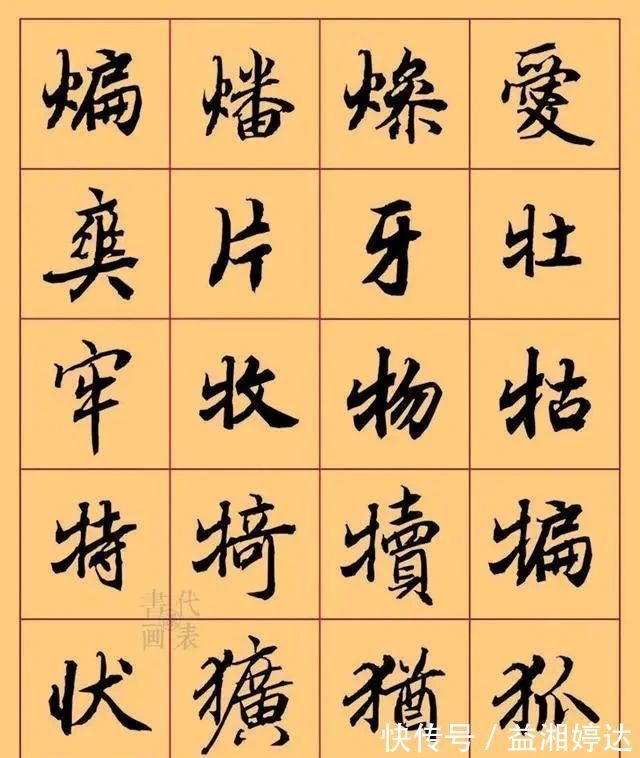 煸 燔 愛
爽 片 牙 壮
牢 牧 物 牯
特 犄 犢 犏
状 獷 猶 狐
書画
代表
快传号 / 益湘婷达